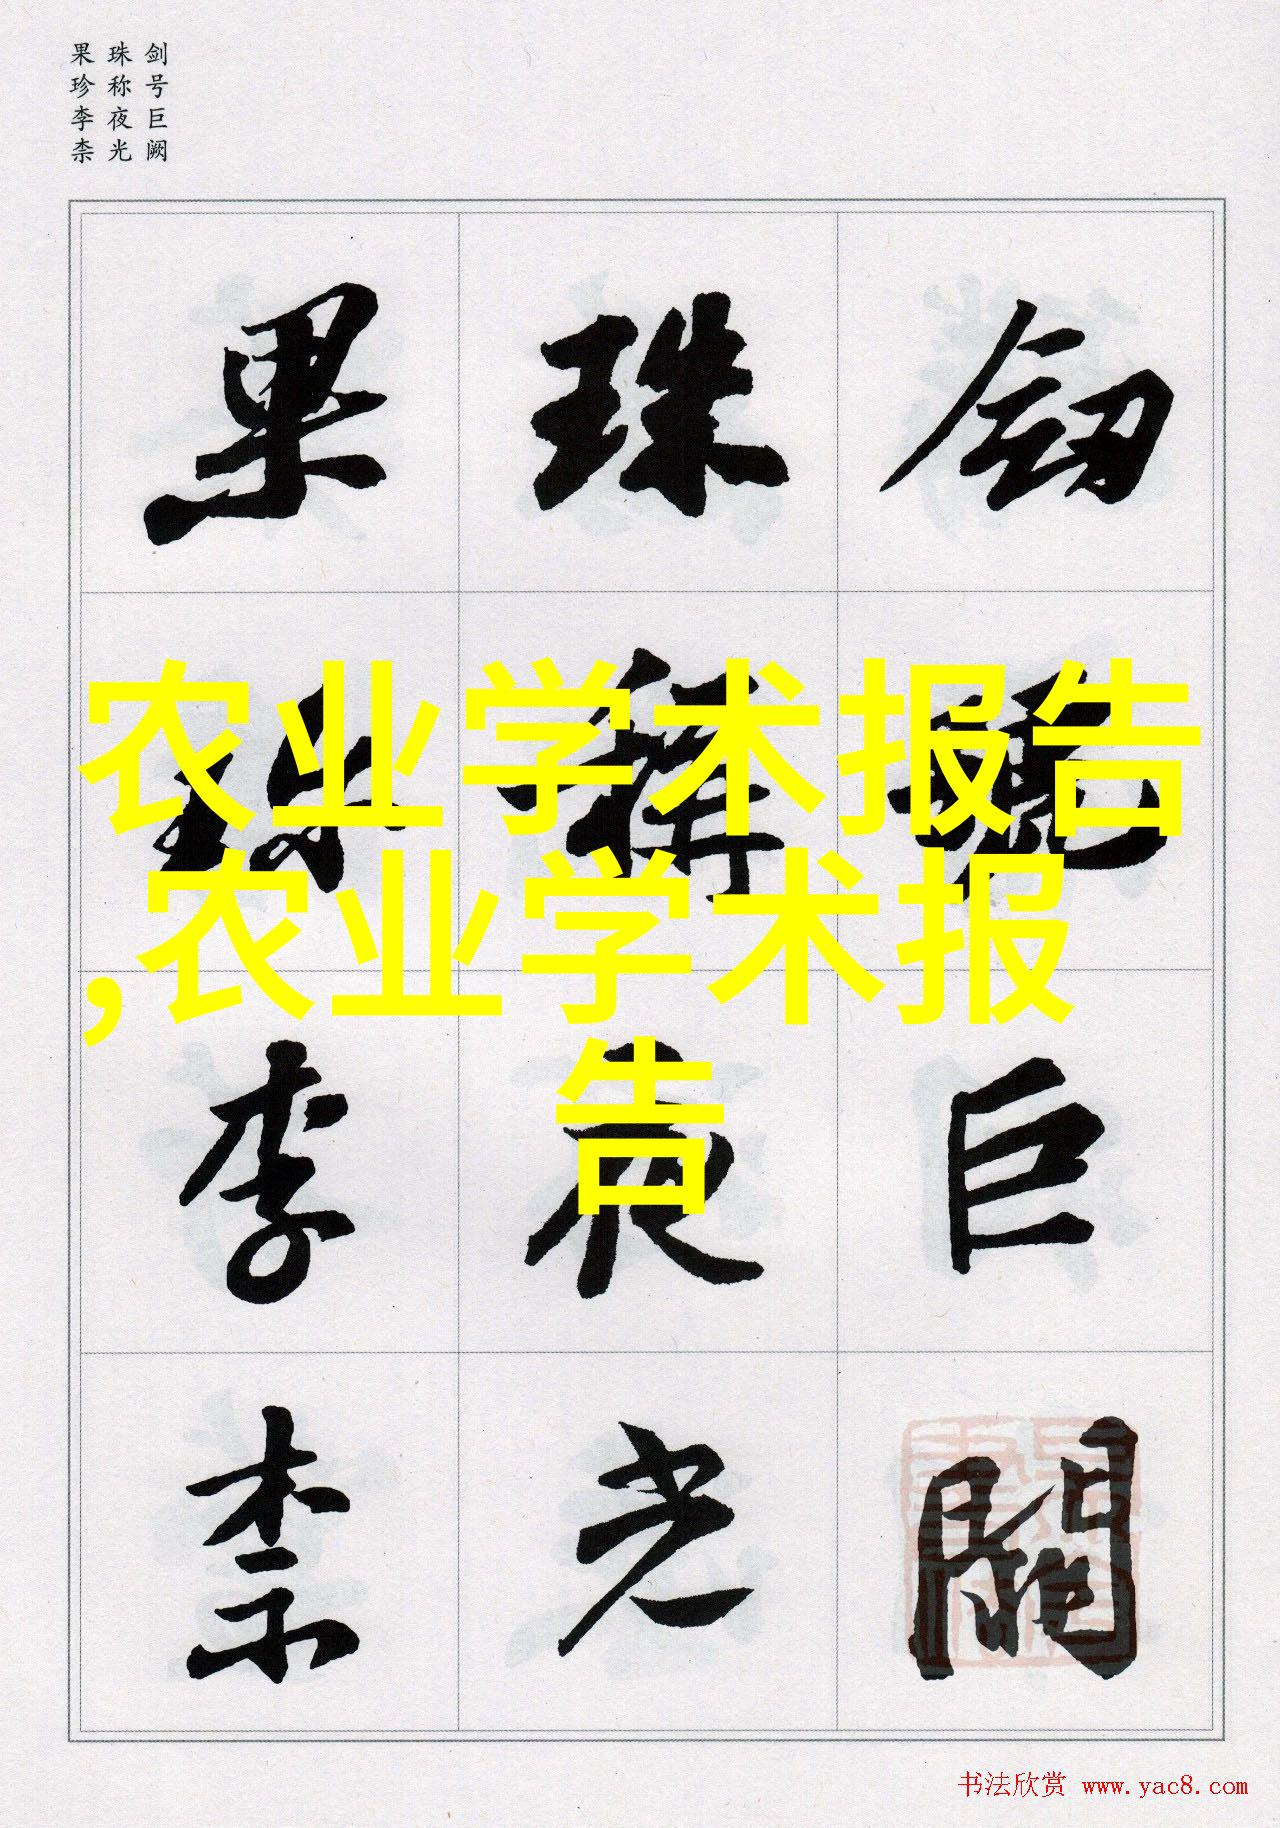 剑号巨阙
珠称夜光
果珍李柰
剑号巨阙
珠称夜光
果珍李柰
农业学术报告
,农业学术报
告
书法欣赏 www.yac8.com